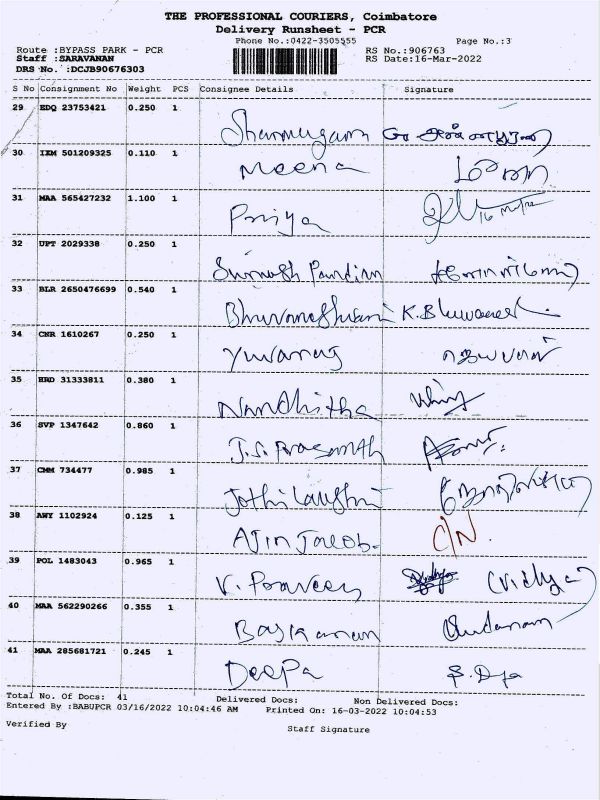 THE PROFESSIONAL COURIERS, Coimbatore
Delivery Runsheet - PCR
Phone No.:0422-3505555 Page No.:3
Route :BYPASS PARK - PCR RS No.:906763
Staff :SARAVANAN RS Date:16-Mar-2022
DRS No. :DCJB90676303
S No Consignment No Weight PCS Consignee Details Signature
29 EDQ 23753421 0.250 1
Shanmugam
30 IXM 501209325 0.110 1
Meena மீனா
31 MAA 565427232 1.100 1
Priya
32 UPT 2029338 0.250 1
Pandian
33 BLR 2650476699 0.540 1
Bhuvaneshwari K.Bhuvanesh
34 CNR 1610267 0.250 1
Yuvaraj யுவராஜ்
35 HRD 31333811 0.380 1
Nandhitha
36 SVP 1347642 0.860 1
J.S. Prasanth
37 CMM 734477 0.985 1
Jothilakshmi
38 AWY 1102924 0.125 1
Ajin Jacob. C/N.
39 POL 1483043 0.965 1
V. Praveen (Vidhya)
40 MAA 562290266 0.355 1
Baskaran
41 MAA 285681721 0.245 1
Deepa
Total No. Of Docs: 41 Delivered Docs: Non Delivered Docs:
Entered By :BABUPCR 03/16/2022 10:04:46 AM Printed On: 16-03-2022 10:04:53
Verified By Staff Signature